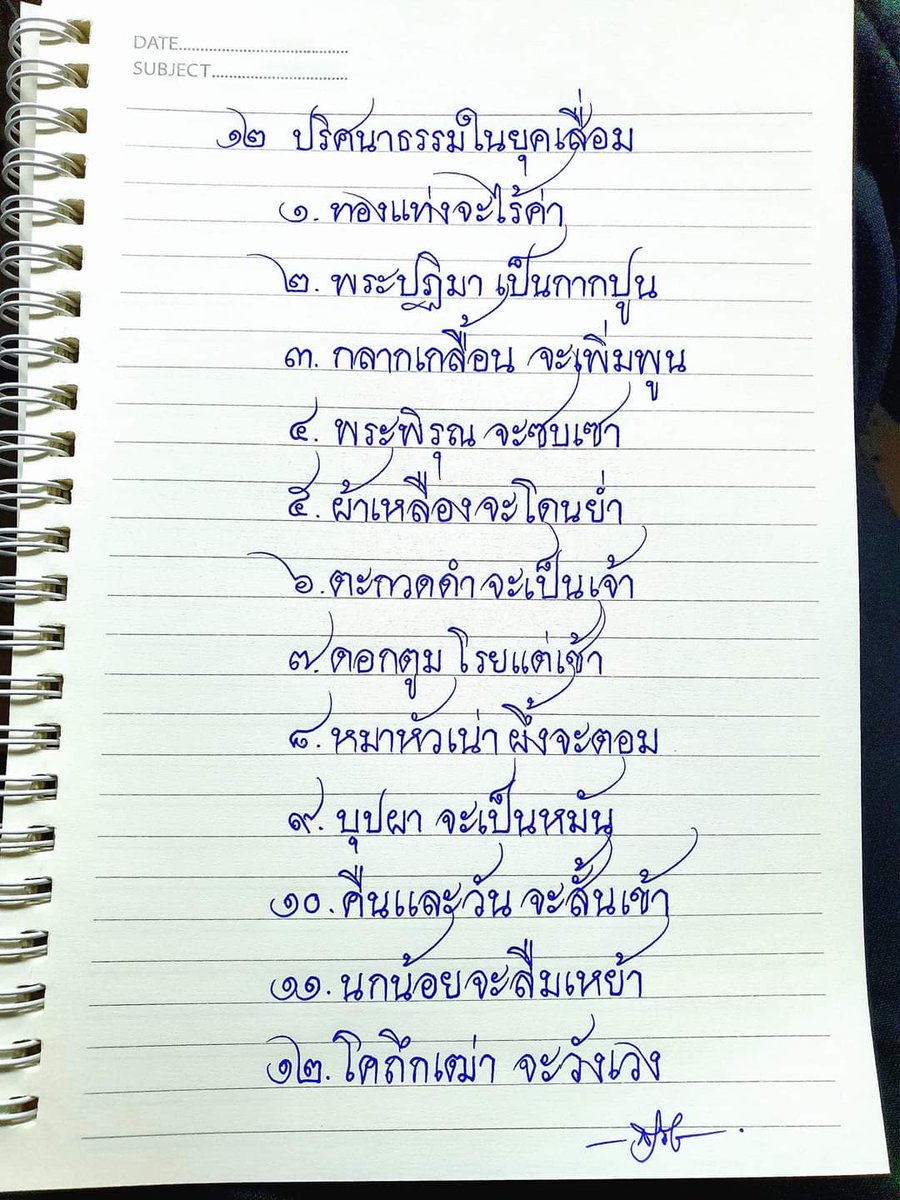 DATE........................................
SUBJECT................................
๑๒ ปริศนาธรรมในยุคเสื่อม
๑. ทองแท่งจะไร้ค่า
๒. พระปฏิมา เป็นกากปูน
๓. กลากเกลื้อน จะเพิ่มพูน
๔. พระพิรุณ จะซบเซา
๕. ผ้าเหลืองจะโดนย่ำ
๖. ตะกวดดำ จะเป็นเจ้า
๗. ดอกตูม โรยแต่เช้า
๘. หมาหัวเน่า ผึ้งจะตอม
๙. บุปผา จะเป็นหมัน
๑๐. คืนและวัน จะสั้นเข้า
๑๑. นกน้อยจะลืมเหย้า
๑๒. โคถึกเฒ่า จะวังเวง